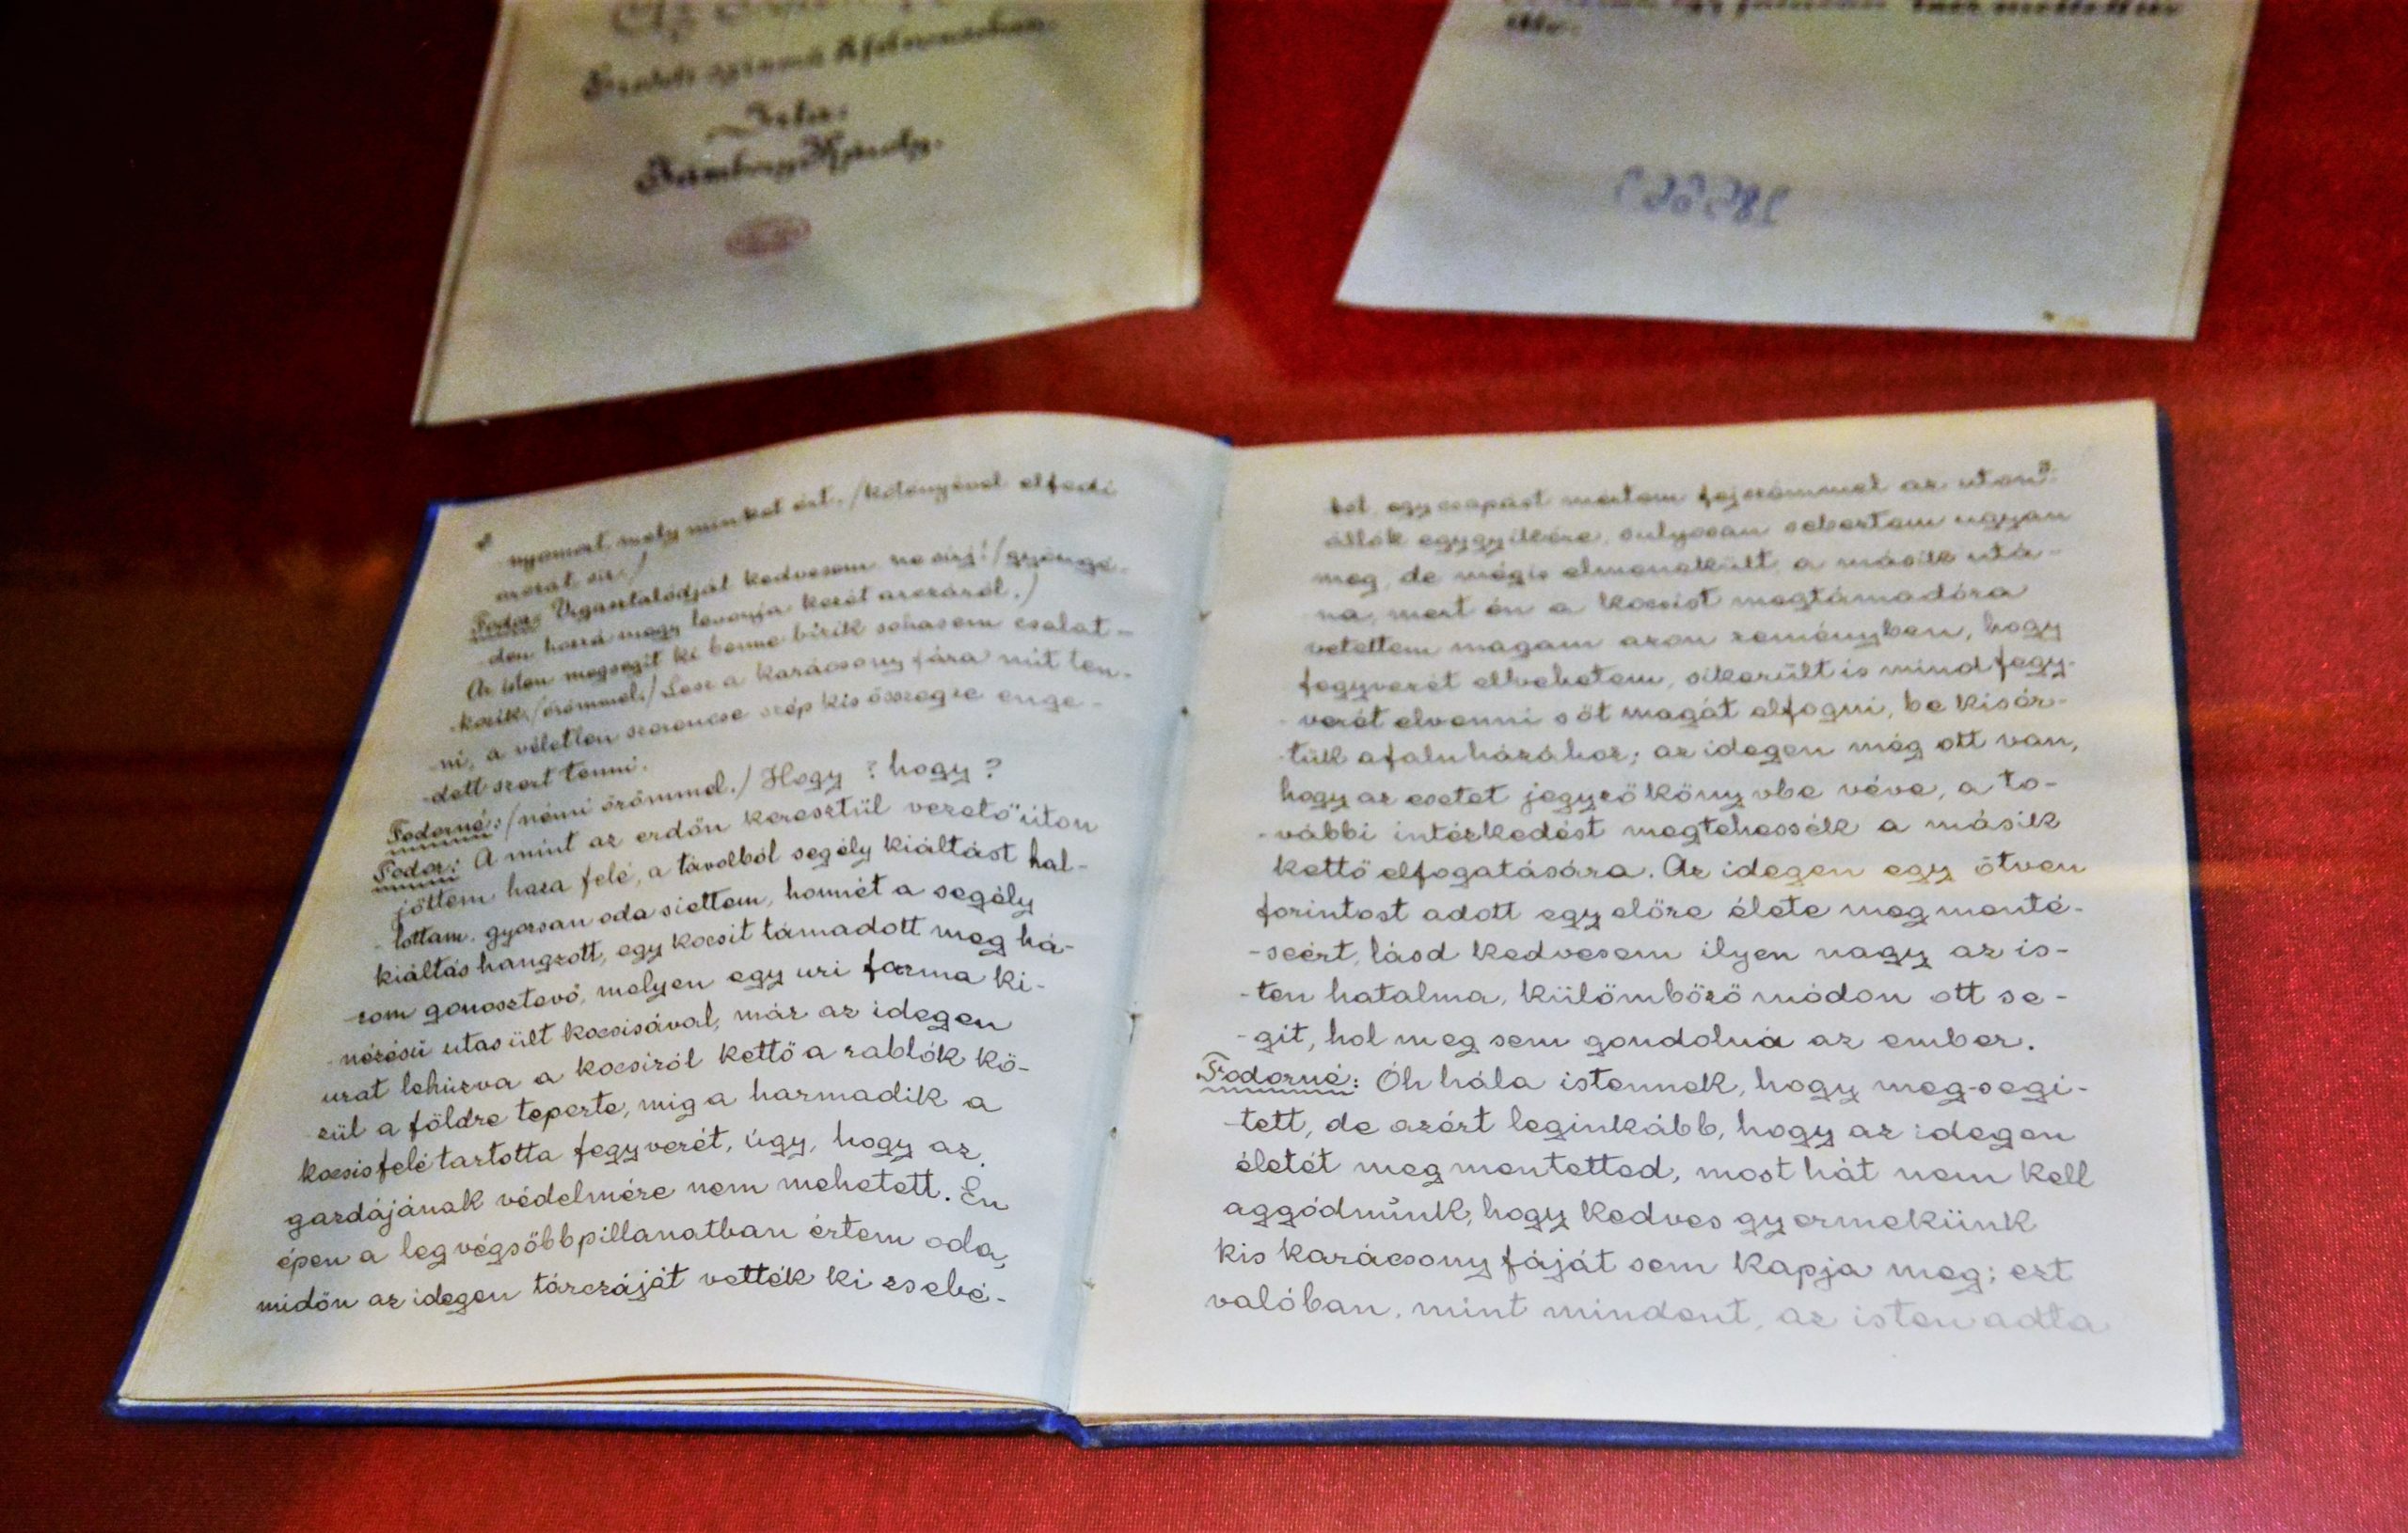 Írta:
nyomort, mely minket ért. /kötényével elfedi
arczát, sir./
Fodor: Vigasztalódjál kedvesem ne sirj! /gyöngé-
-den hozzá megy levonja kezét arczáról./
Az isten megsegit ki benne bizik sohasem csalat-
-kozik. /örömmel./ Lesz a karácsony fára mit ten-
-ni, a véletlen szerencse szép kis összegre enge-
-dett szert tenni.
Fodorné: /némi örömmel./ Hogy? hogy?
Fodor: A mint az erdőn keresztül vezető úton
jöttem haza felé, a távolból segély kiáltást hal-
-lottam. gyorsan oda siettem, honnét a segély
kiáltás hangzott, egy kocsit támadott meg há-
-rom gonosztevő, melyen egy uri forma ki-
-nézésü utas ült kocsisával, már az idegen
urat lehúzva a kocsiról kettő a rablók kö-
-zül a földre teperte, mig a harmadik a
kocsis felé tartotta fegyverét, úgy, hogy az
gazdájának védelmére nem mehetett. Én
épen a legvégsőbb pillanatban értem oda,
midőn az idegen tárczáját vették ki zsebé-
ből, egy csapást mértem fejszémmel az uton
állók egygyikére, sulyosan sebeztem ugyan
meg, de mégis elmenekült a másik utá-
na, mert én a kocsist megtámadóra
vetettem magam azon reményben, hogy
fegyverét elvehetem, sikerült is mind fegy-
-verét elvenni sőt magát elfogni, be kisér-
-tük a faluházához; az idegen még ott van,
hogy az esetet jegyzőkönyvbe véve, a to-
-vábbi intézkedést megtehessék a másik
kettő elfogatására. Az idegen egy ötven
forintost adott egyelőre élete megmenté-
-seért, lásd kedvesem ilyen nagy az is-
-ten hatalma, külömböző módon ott se-
-git, hol meg sem gondolná az ember.
Fodorné: Óh hála istennek, hogy meg-segi-
-tett, de azért leginkább, hogy az idegen
életét megmentetted, most hát nem kell
aggódnúnk, hogy kedves gyermekünk
kis karácsony fáját sem kapja meg; ezt
valóban, mint mindent, az isten adta